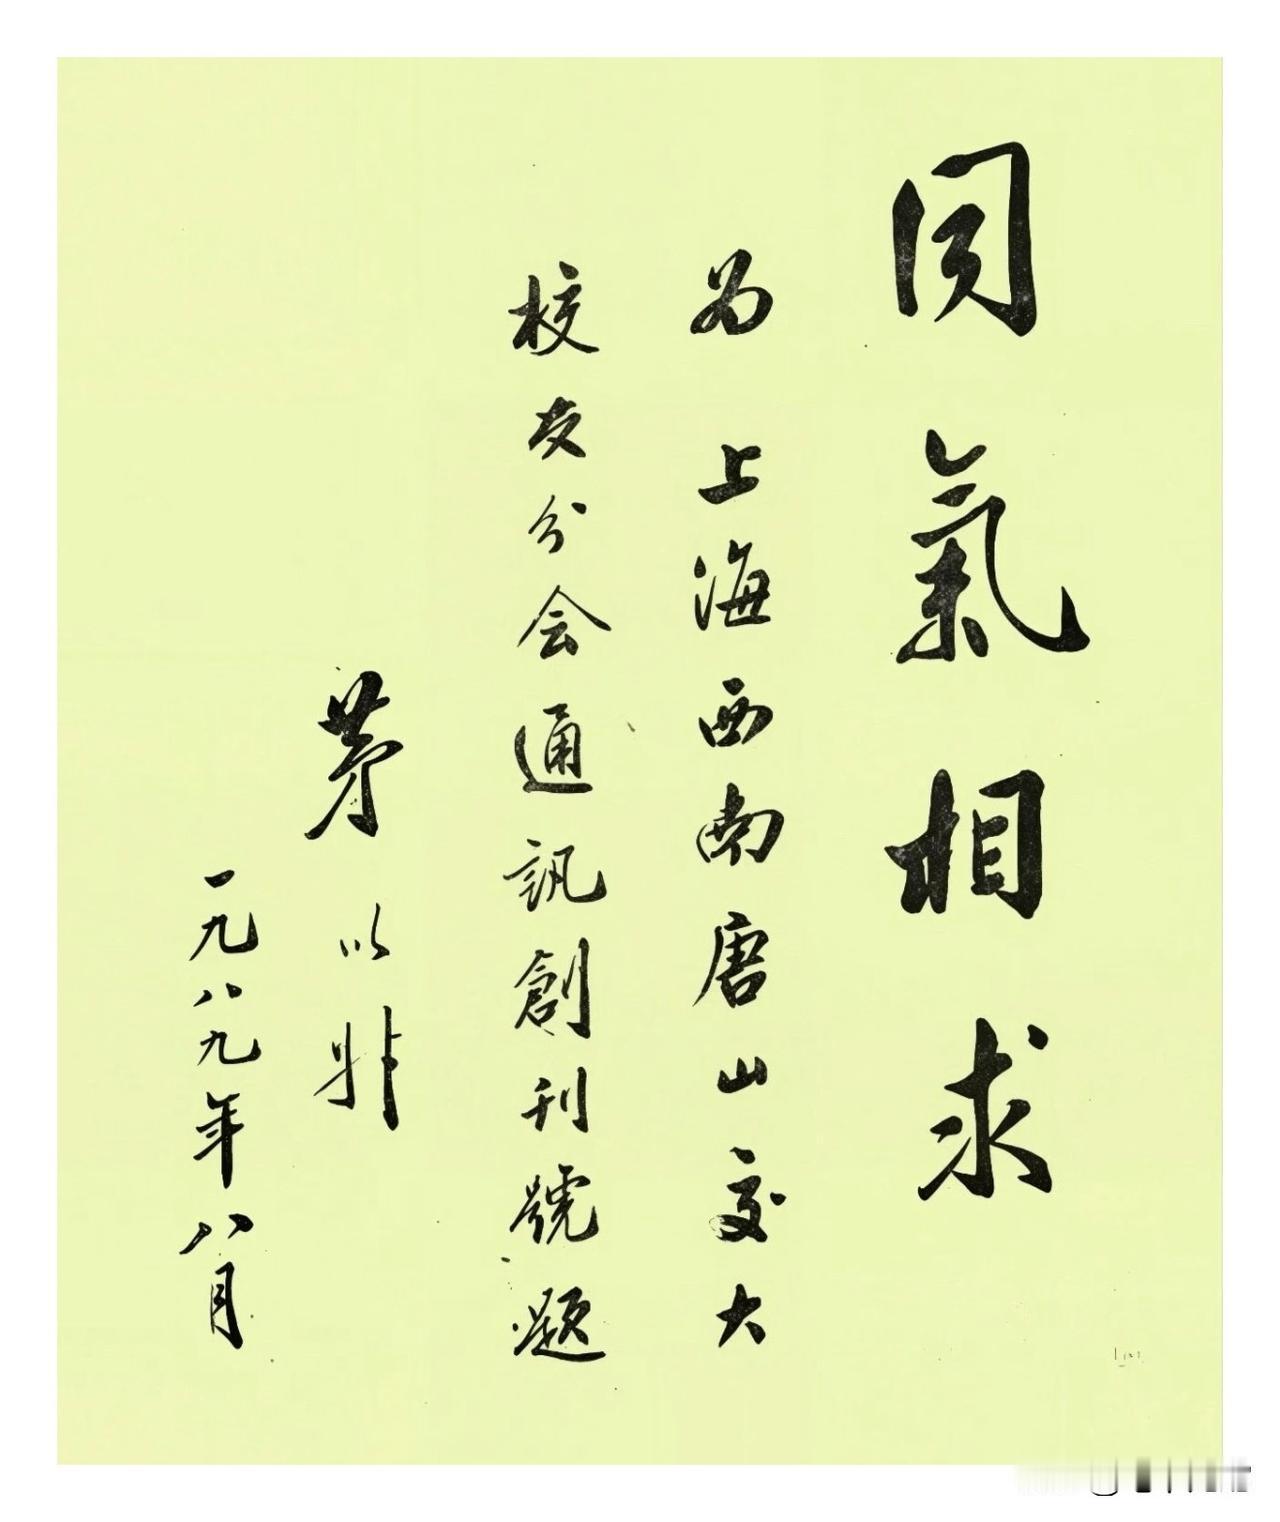 同氣相求
为上海西南唐山交大
校友分会通訊創刊號题
茅以升
一九八九年八月